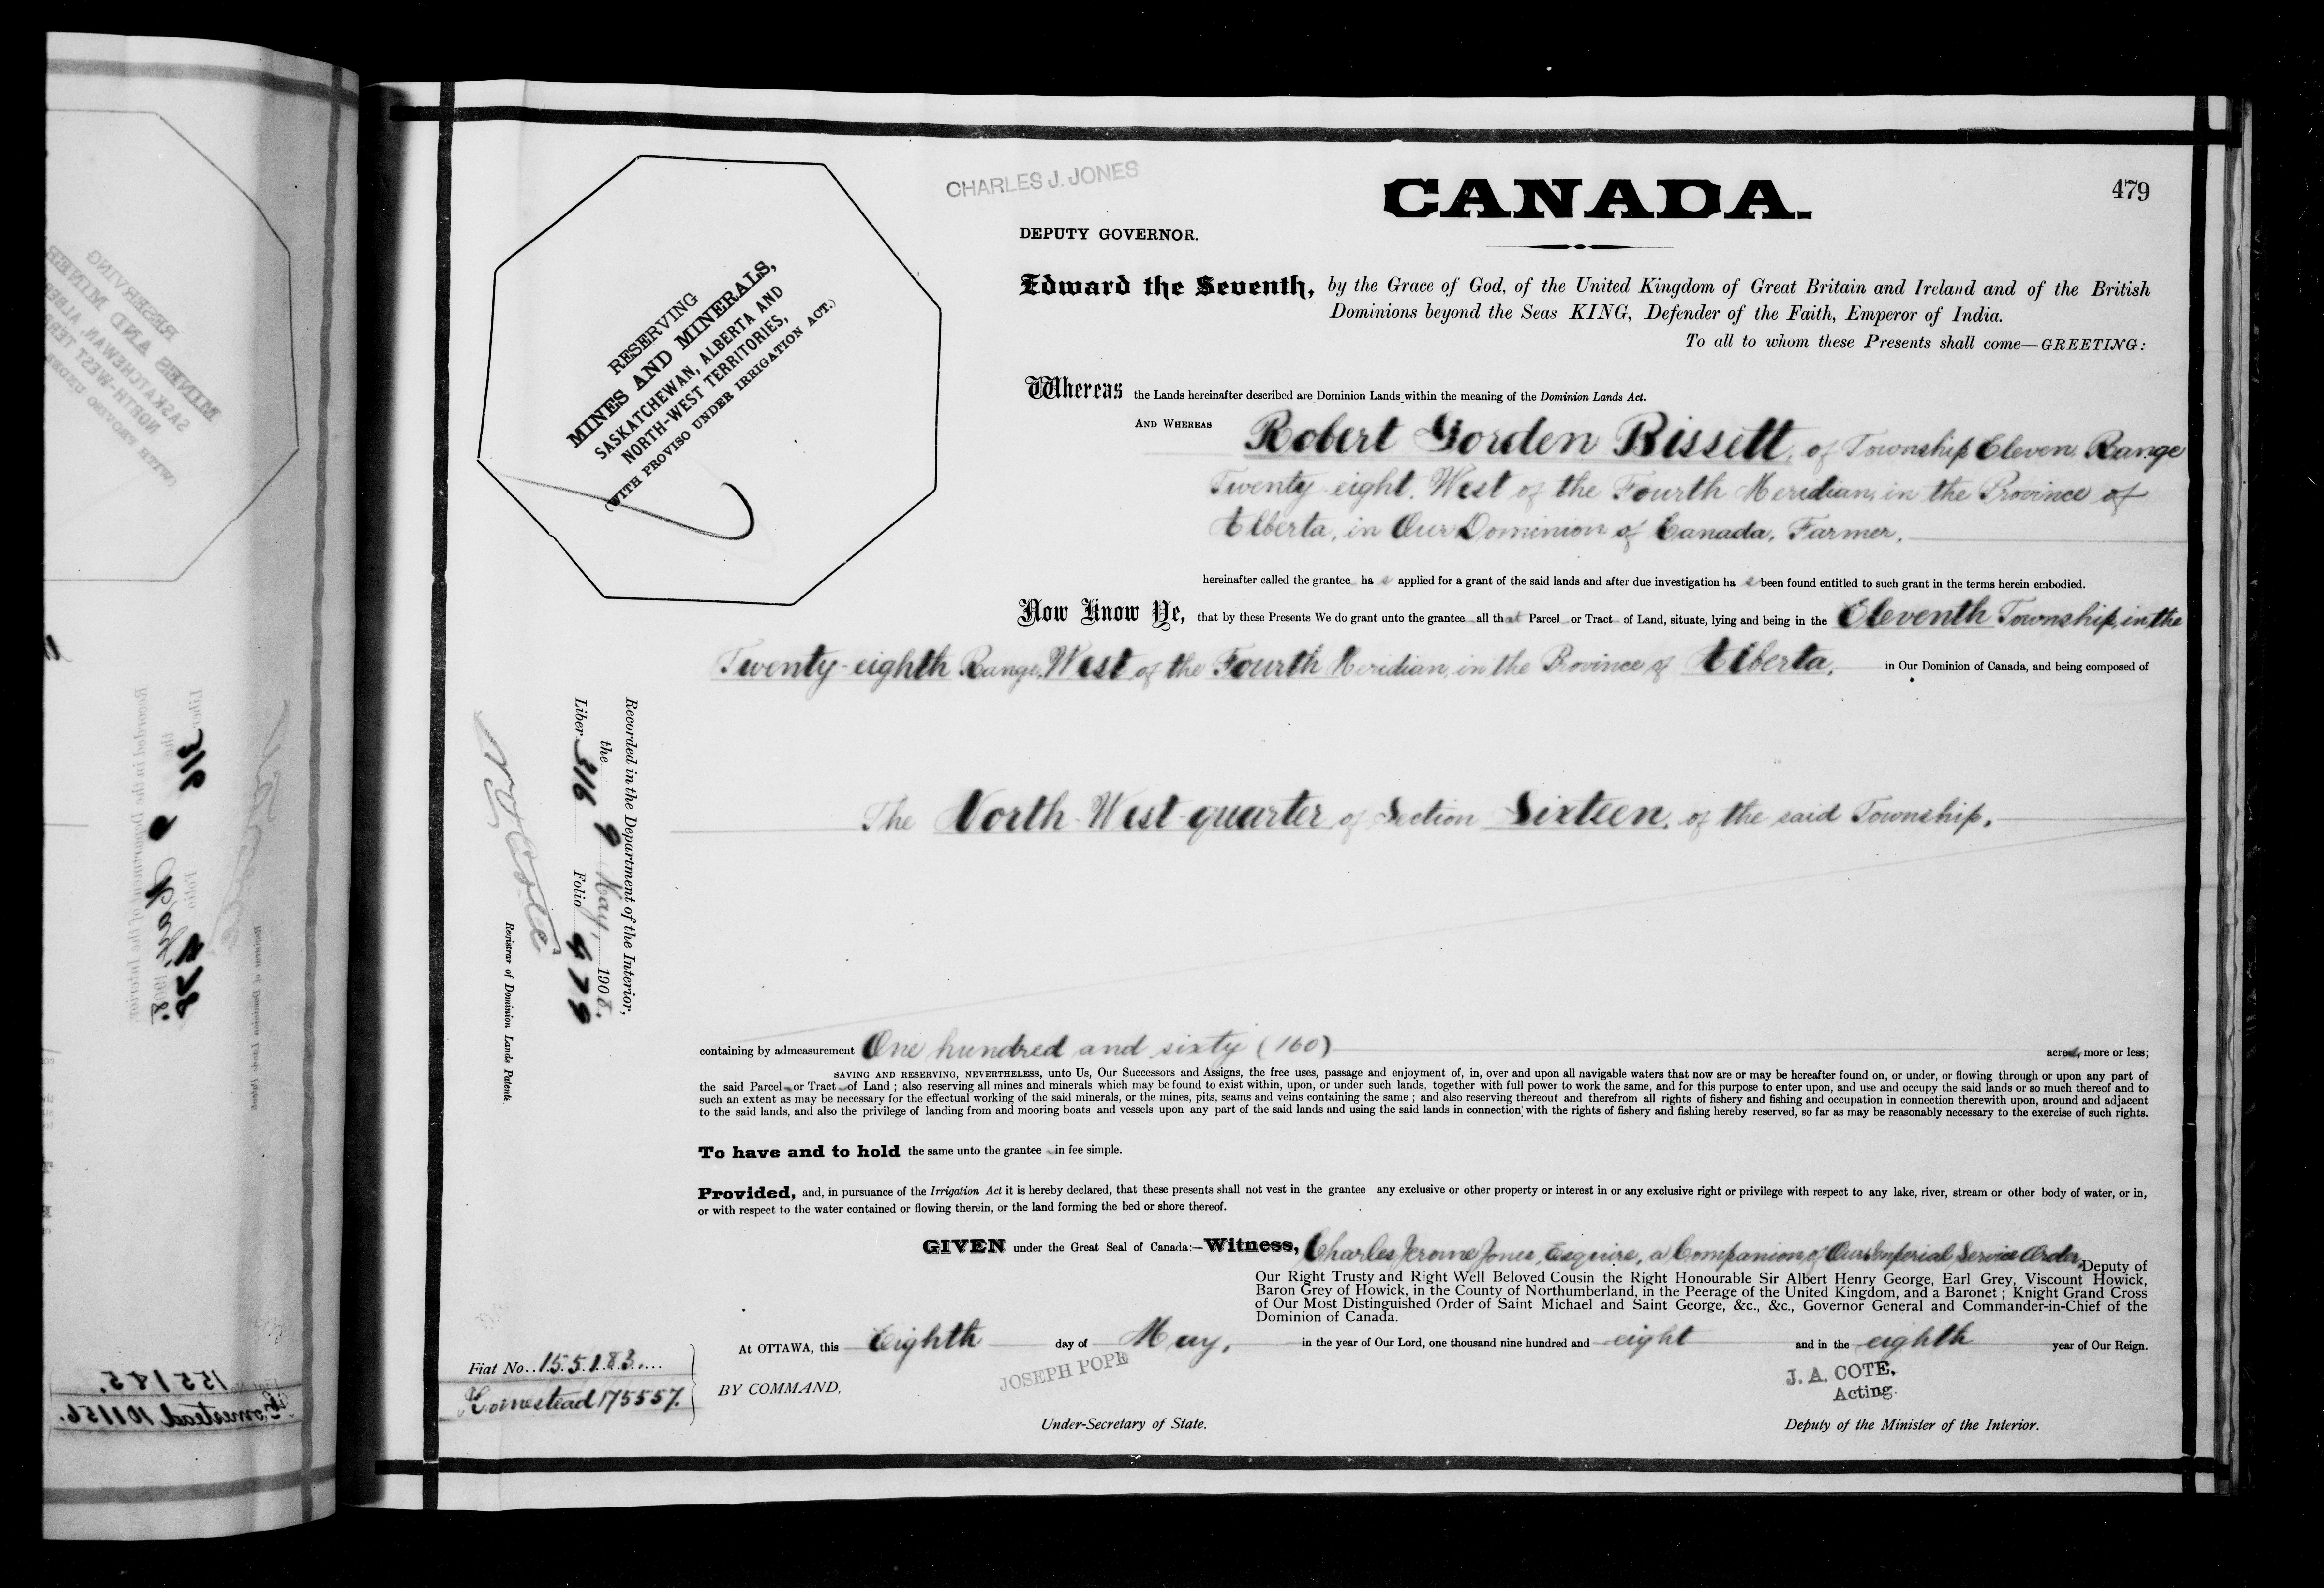 CHARLES J. JONES
CANADA.
479
DEPUTY GOVERNOR.
Edward the Seventh, by the Grace of God, of the United Kingdom of Great Britain and Ireland and of the British
Dominions beyond the Seas KING, Defender of the Faith, Emperor of India.
To all to whom these Presents shall come—GREETING:
RESERVING
MINES AND MINERALS,
SASKATCHEWAN, ALBERTA AND
NORTH-WEST TERRITORIES,
(WITH PROVISO UNDER IRRIGATION ACT.)
Whereas the Lands hereinafter described are Dominion Lands within the meaning of the Dominion Lands Act.
AND WHEREAS Robert Gorden Bissett, of Township Eleven, Range
Twenty-eight, West of the Fourth Meridian, in the Province of
Alberta, in Our Dominion of Canada, Farmer,
hereinafter called the grantee has applied for a grant of the said lands and after due investigation has been found entitled to such grant in the terms herein embodied.
Now Know Ye, that by these Presents We do grant unto the grantee all that Parcel or Tract of Land, situate, lying and being in the Eleventh Township, in the
Twenty-eighth Range, West of the Fourth Meridian, in the Province of Alberta, in Our Dominion of Canada, and being composed of
The North-West quarter of Section Sixteen, of the said Township,
Recorded in the Department of the Interior,
the 9 May, 1908.
Liber 316 Folio 479
Registrar of Dominion Lands Patents
containing by admeasurement One hundred and sixty (160) acres, more or less;
SAVING AND RESERVING, NEVERTHELESS, unto Us, Our Successors and Assigns, the free uses, passage and enjoyment of, in, over and upon all navigable waters that now are or may be hereafter found on, or under, or flowing through or upon any part of
the said Parcel or Tract of Land ; also reserving all mines and minerals which may be found to exist within, upon, or under such lands, together with full power to work the same, and for this purpose to enter upon, and use and occupy the said lands or so much thereof and to
such an extent as may be necessary for the effectual working of the said minerals, or the mines, pits, seams and veins containing the same ; and also reserving thereout and therefrom all rights of fishery and fishing and occupation in connection therewith upon, around and adjacent
to the said lands, and also the privilege of landing from and mooring boats and vessels upon any part of the said lands and using the said lands in connection with the rights of fishery and fishing hereby reserved, so far as may be reasonably necessary to the exercise of such rights.
To have and to hold the same unto the grantee in fee simple.
Provided, and, in pursuance of the Irrigation Act it is hereby declared, that these presents shall not vest in the grantee any exclusive or other property or interest in or any exclusive right or privilege with respect to any lake, river, stream or other body of water, or in,
or with respect to the water contained or flowing therein, or the land forming the bed or shore thereof.
GIVEN under the Great Seal of Canada:—Witness, Charles Jerome Jones, Esquire, a Companion of Our Imperial Service Order, Deputy of
Our Right Trusty and Right Well Beloved Cousin the Right Honourable Sir Albert Henry George, Earl Grey, Viscount Howick,
Baron Grey of Howick, in the County of Northumberland, in the Peerage of the United Kingdom, and a Baronet ; Knight Grand Cross
of Our Most Distinguished Order of Saint Michael and Saint George, &c., &c., Governor General and Commander-in-Chief of the
Dominion of Canada.
At OTTAWA, this Eighth day of May, in the year of Our Lord, one thousand nine hundred and eight and in the eighth year of Our Reign.
Fiat No. 155183.
Homestead 175557.
BY COMMAND,
JOSEPH POPE
Under-Secretary of State.
J. A. COTE,
Acting
Deputy of the Minister of the Interior.